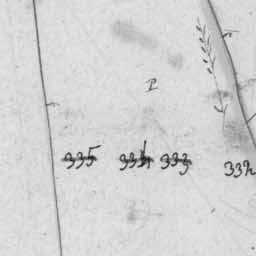 P
335 334 333 332